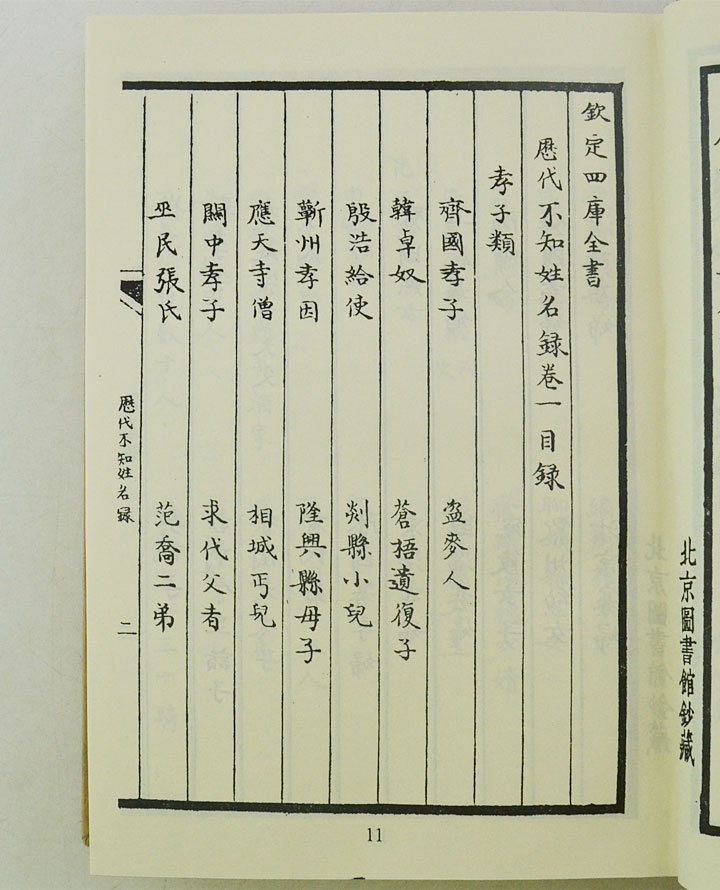 北京圖書館鈔藏
欽定四庫全書
歷代不知姓名録卷一目録
孝子類
齊國孝子 盜麥人
韓卓奴 蒼梧遺復子
殷浩給使 剡縣小兒
蘄州孝因 隆興縣母子
應天寺僧 相城丐兒
關中孝子 求代父者
巫民張氏 范喬二弟
歷代不知姓名録 二
11